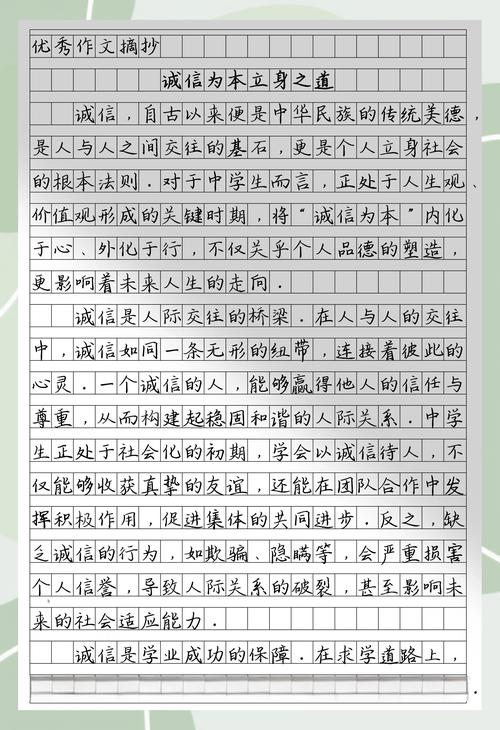 优秀作文摘抄
诚信为本立身之道
诚信，自古以来便是中华民族的传统美德，
是人与人之间交往的基石，更是个人立身社会
的根本法则．对于中学生而言，正处于人生观、
价值观形成的关键时期，将“诚信为本”内化
于心、外化于行，不仅关乎个人品德的塑造，
更影响着未来人生的走向．
诚信是人际交往的桥梁．在人与人的交往
中，诚信如同一条无形的纽带，连接着彼此的
心灵．一个诚信的人，能够赢得他人的信任与
尊重，从而构建起稳固和谐的人际关系．中学
生正处于社会化的初期，学会以诚信待人，不
仅能够收获真挚的友谊，还能在团队合作中发
挥积极作用，促进集体的共同进步．反之，缺
乏诚信的行为，如欺骗、隐瞒等，会严重损害
个人信誉，导致人际关系的破裂，甚至影响未
来的社会适应能力．
诚信是学业成功的保障．在求学道路上，